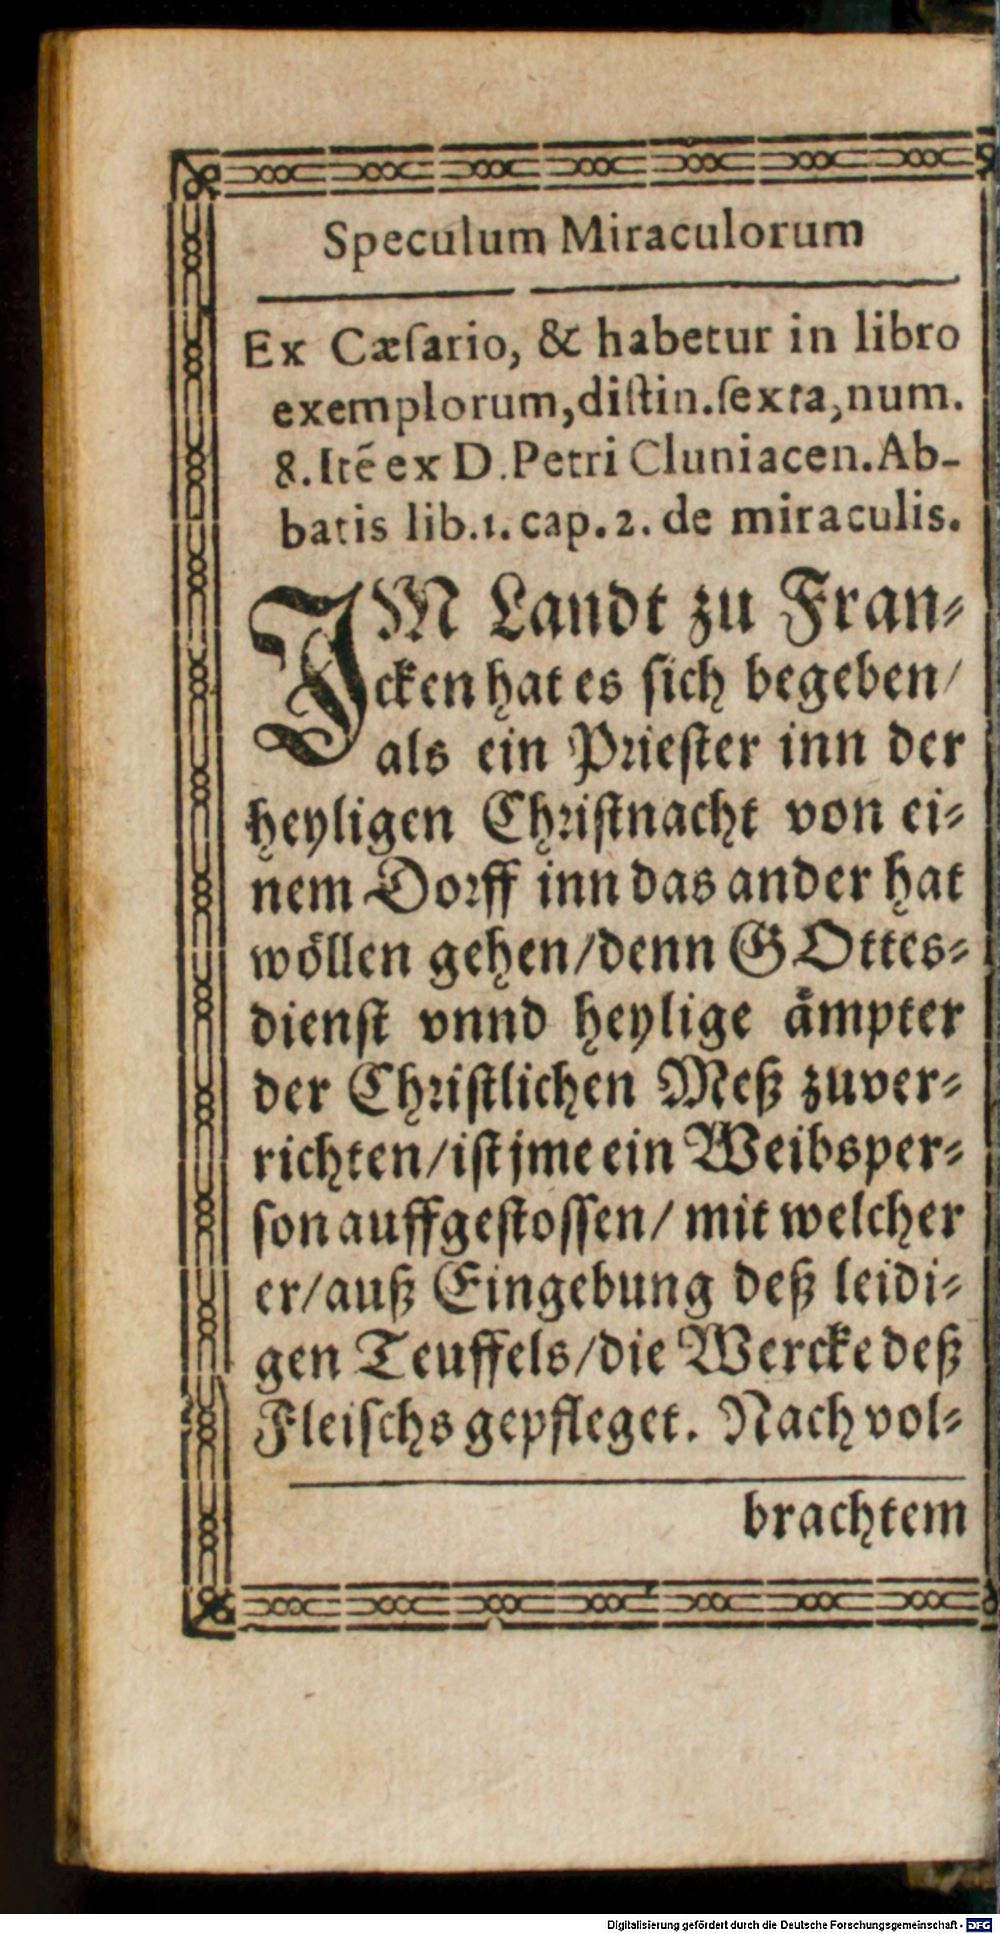 Speculum Miraculorum
Ex Cæſario, & habetur in libro
exemplorum, diſtin. ſexta, num.
8. Itē ex D. Petri Cluniacen. Ab-
batis lib. 1. cap. 2. de miraculis.
IM Landt zu Fran⸗
cken hat es sich begeben/
als ein Prieſter inn der
heyligen Chriſtnacht von ei⸗
nem Dorff inn das ander hat
wöllen gehen/denn GOttes⸗
dienſt vnnd heylige ämpter
der Chriſtlichen Meß zuver⸗
richten/iſt jme ein Weibsper⸗
ſon auffgeſtoſſen/ mit welcher
er/auß Eingebung deß leidi⸗
gen Teuffels/die Wercke deß
Fleiſchs gepfleget. Nach vol⸗
brachtem
Digitalisierung gefördert durch die Deutsche Forschungsgemeinschaft - DFG